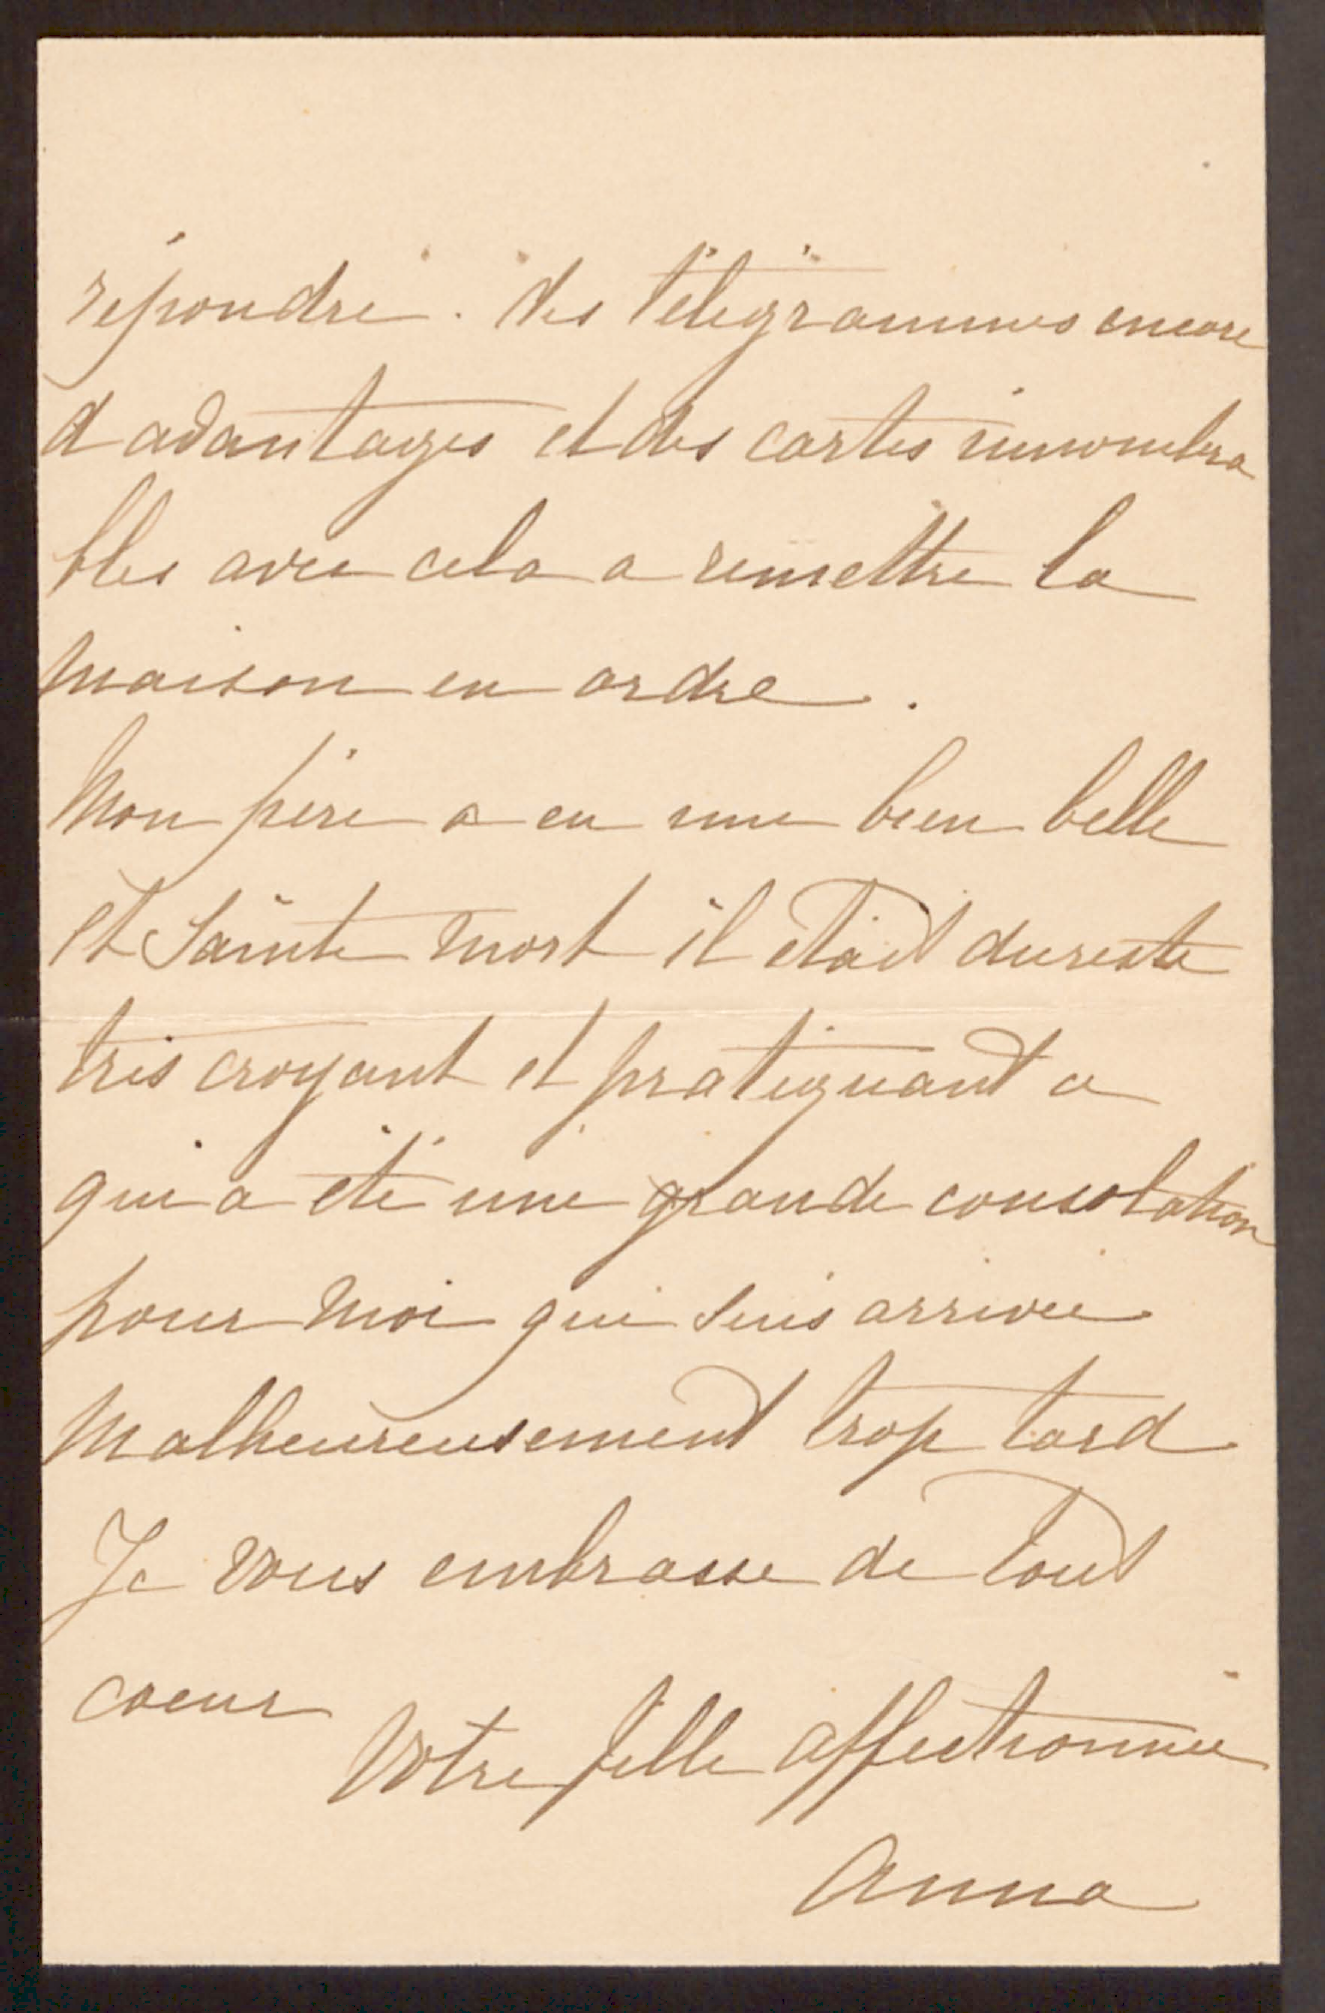 répondre. des télégrammes encore
d adantages et des cartes innombra
bles avec cela a remettre la
maison en ordre.
Mon père a eu une bien belle
et Sainte mort il était dureste
très croyant et pratiquant ce
qui a été une grande consolation
pour moi qui suis arrivée
malheureusement trop tard
Je vous embrasse de tout
coeur
Votre fille affectionnée
Anna